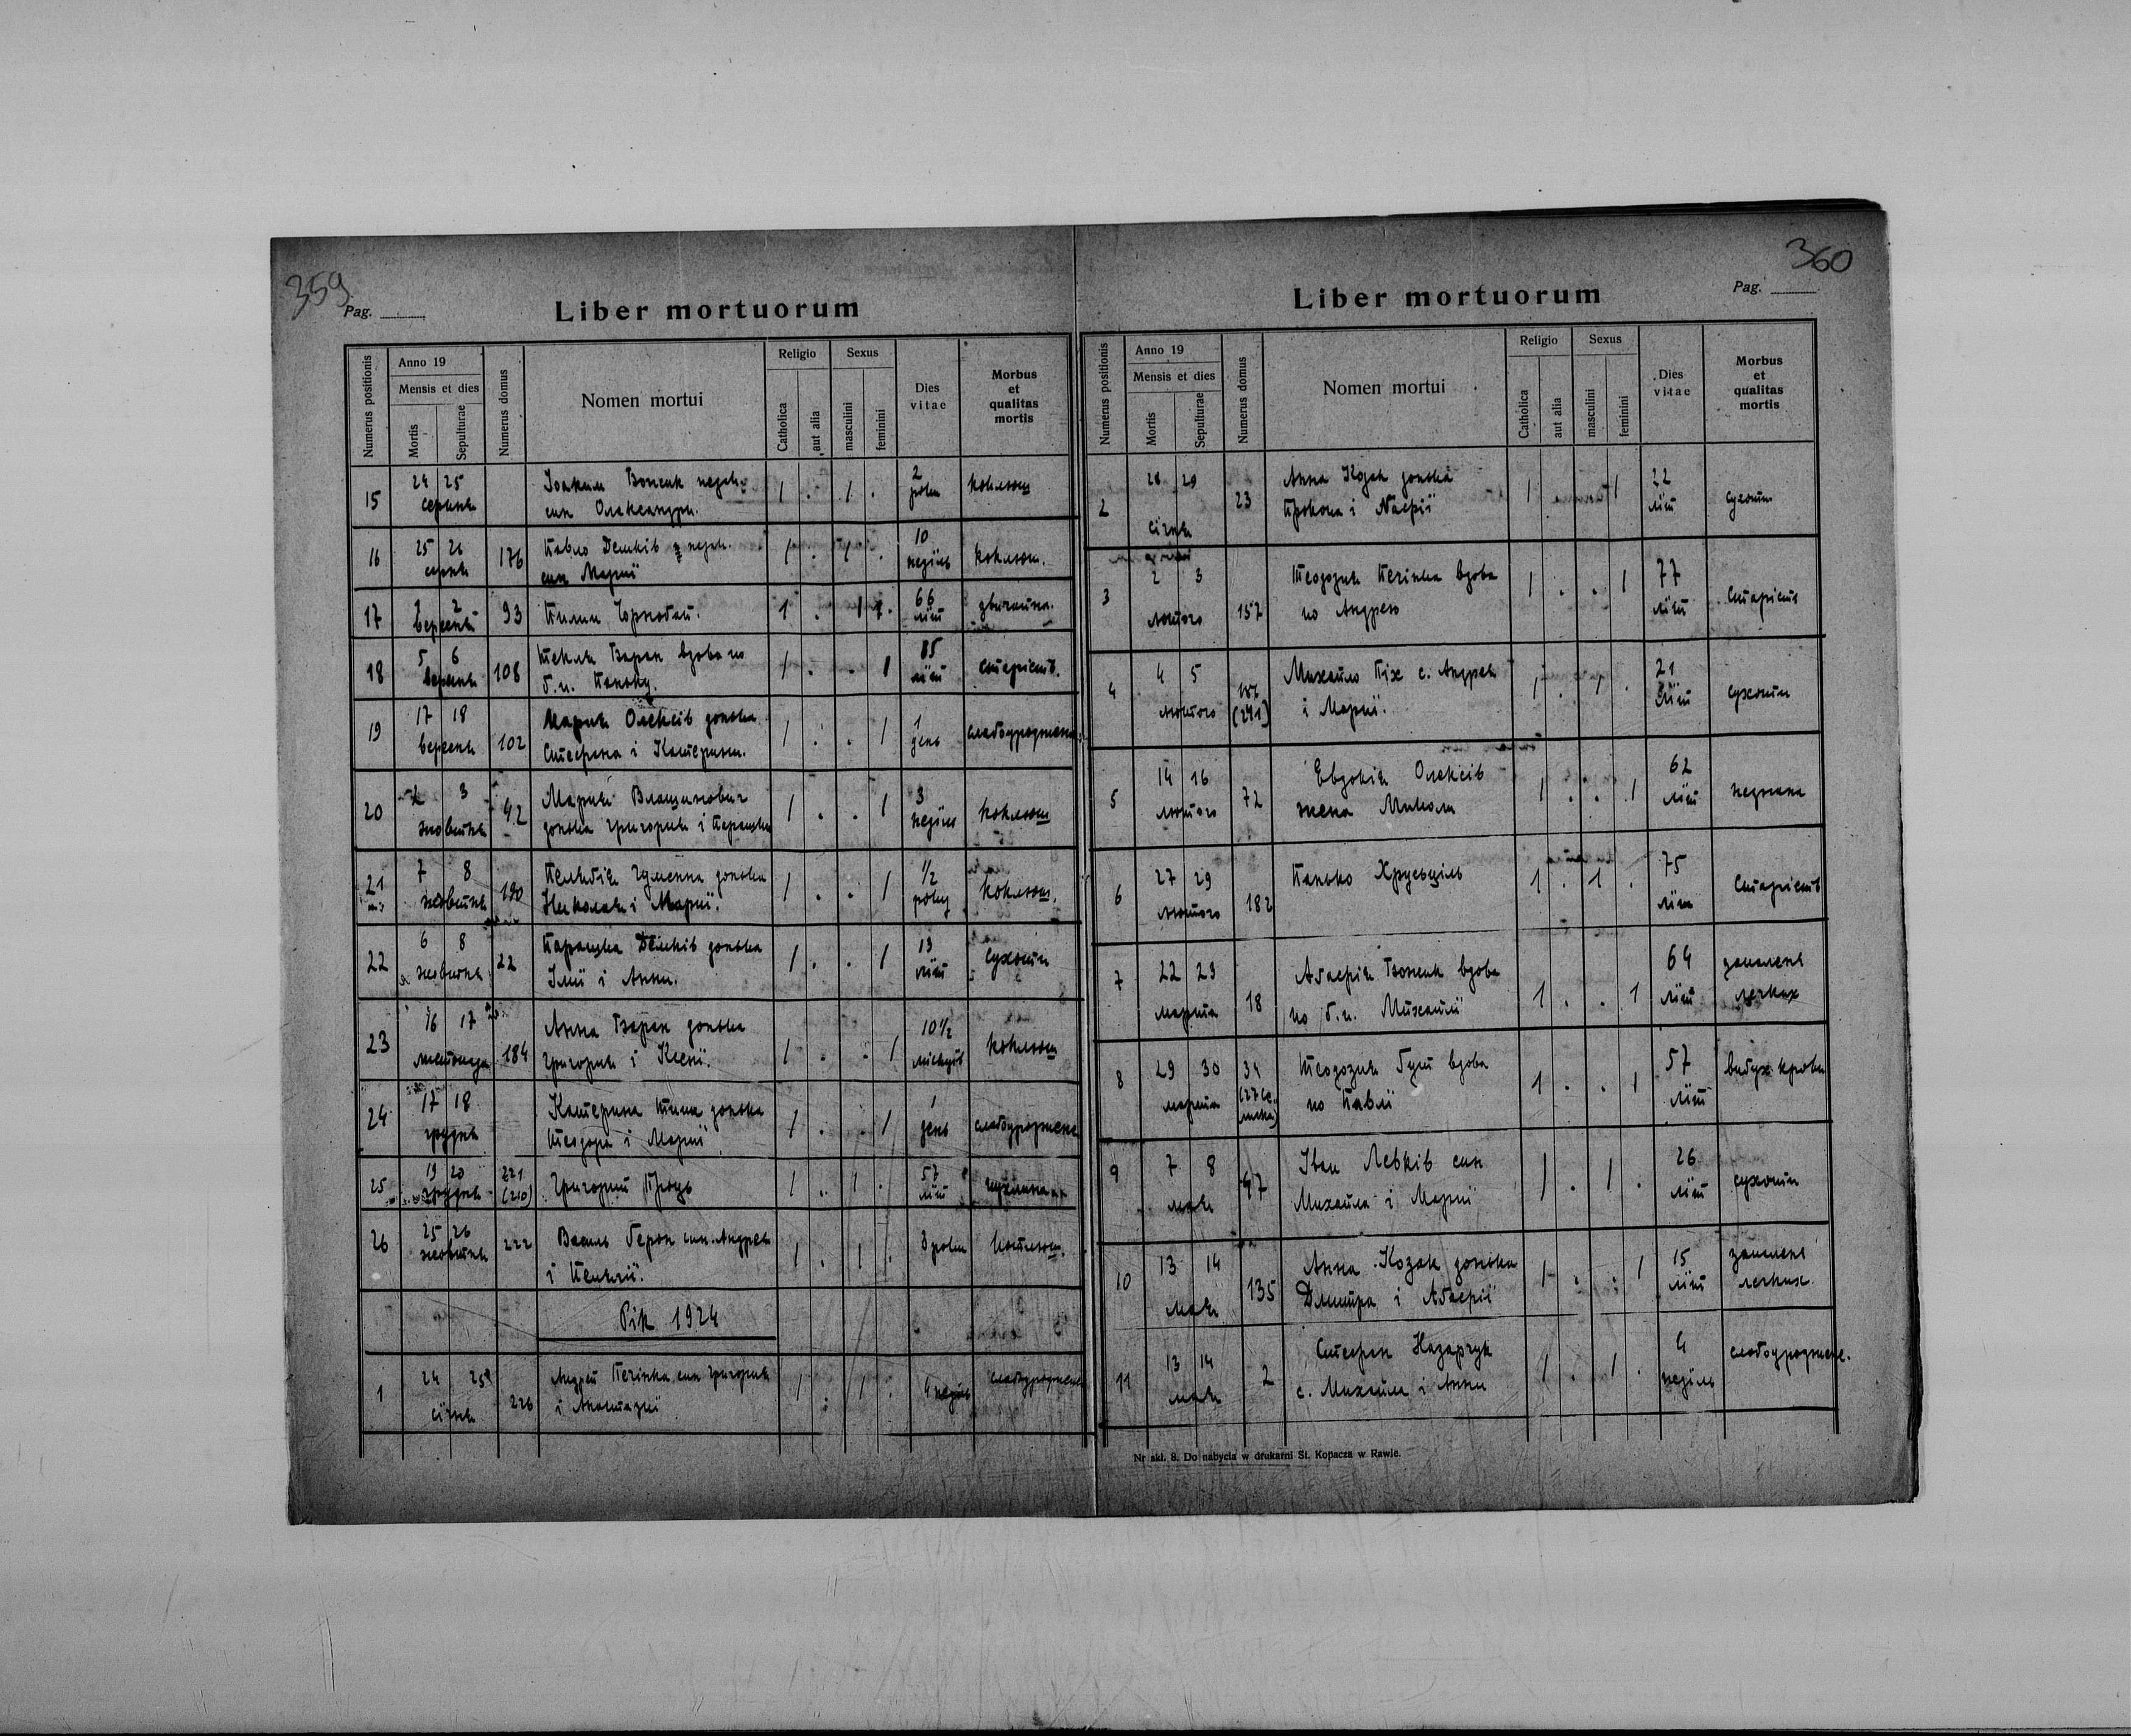 359
Pag.
Liber mortuorum
Numerus positionis
Anno 19
Mensis et dies
Mortis
Sepulturae
Numerus domus
Nomen mortui
Religio
Catholica
aut alia
Sexus
masculini
feminini
Dies vitae
Morbus et qualitas mortis
15 24 25 серпня Іоаким Вонсик
син Олександри. 1 . 1 . 2 роки коклюш
16 25 26 серпня 176 Павло Демків
син Марії 1 . 1 . 10 неділь коклюш.
17 2 вересня 93 1 . 1 . 66 літ звичайна.
18 5 6 вересня 108 Текля Баран вдова по
б. п. Паньку. 1 . . 1 85 літ старість.
19 17 18 вересня 102 Марія Олексів донька
Стефана і Катерини. 1 . . 1 1 день
20 2 3 жовтня 42 Марія донька Григорія і Параньки 1 . . 1 3 неділі коклюш
21 7 8 жовтня 190 Пелагія Гуменна донька
Николая і Марії. 1 . . 1 1/2 року коклюш.
22 6 8 жовтня 22 Паранька Демків донька
Ілії і Анни. 1 . . 1 13 літ сухоти
23 16 17 листопада 184 Анна Баран донька
Григорія і Ксені. 1 . . 1 10 1/2 місяців коклюш
24 17 18 грудня Катерина донька
Теодора і Марії 1 . . 1 1 день
25 19 20 грудня 221 (210) Григорий Проць 1 . 1 . 57 літ
26 25 26 жовтня 222 Василь син Андрея
і Пелагії. 1 . 1 . 3 роки
Рік 1924
1 24 25 січня 226 Андрей Печінка син Григорія
і Анастазії 1 . 1 . 4 неділь
360
Pag.
Liber mortuorum
Numerus positionis
Anno 19
Mensis et dies
Mortis
Sepulturae
Numerus domus
Nomen mortui
Religio
Catholica
aut alia
Sexus
masculini
feminini
Dies vitae
Morbus et qualitas mortis
2 28 29 січня 23 Анна Козак донька
Прокопа і 1 1 22 літ сухоти
3 2 3 лютого 157 Теодозия Печінка вдова
по Андрею 1 . . 1 77 літ Старість
4 4 5 лютого (241) Михайло Піх с. Андрея
і Марії. 1 . 1 . 21 літ сухоти
5 14 16 лютого 72 Евдокія Олексів
жена Миколи 1 . . 1 62 літ незнана
6 27 29 лютого 182 Панько 1 . 1 . 75 літ Старість
7 22 23 марта 18 Вонсик вдова
по б. п. Михайлі 1 . . 1 64 літ запалення легких
8 29 30 марта 34 Теодозия вдова
по Павлі 1 . . 1 57 літ вибух крови
9 7 8 мая 47 Іван Левків син
Михайла і Марії 1 . 1 . 26 літ сухоти
10 13 14 мая 135 Анна Козак донька
Дмитра і 1 . . 1 15 літ запаленє легких.
11 13 14 мая 2 Стефан Назарчук
с. Михайла і Анни 1 . 1 . 4 неділь
Nr skł. 8. Do nabycia w drukarni St. Kopacza w Rawie.